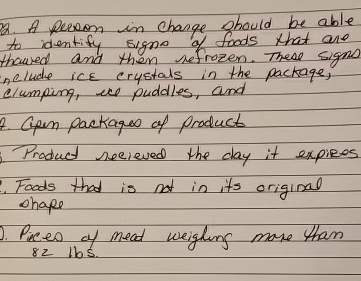 A person in charge should be able
to identify signs of foods that are
thawed and then refrozen. These signs
include ice crystals in the package,
clumping, ice puddles, and
Open packages of product
Product recieved the day it expires
Foods that is not in its original
shape
D. Pieces of meat weighing more than
82 lbs.